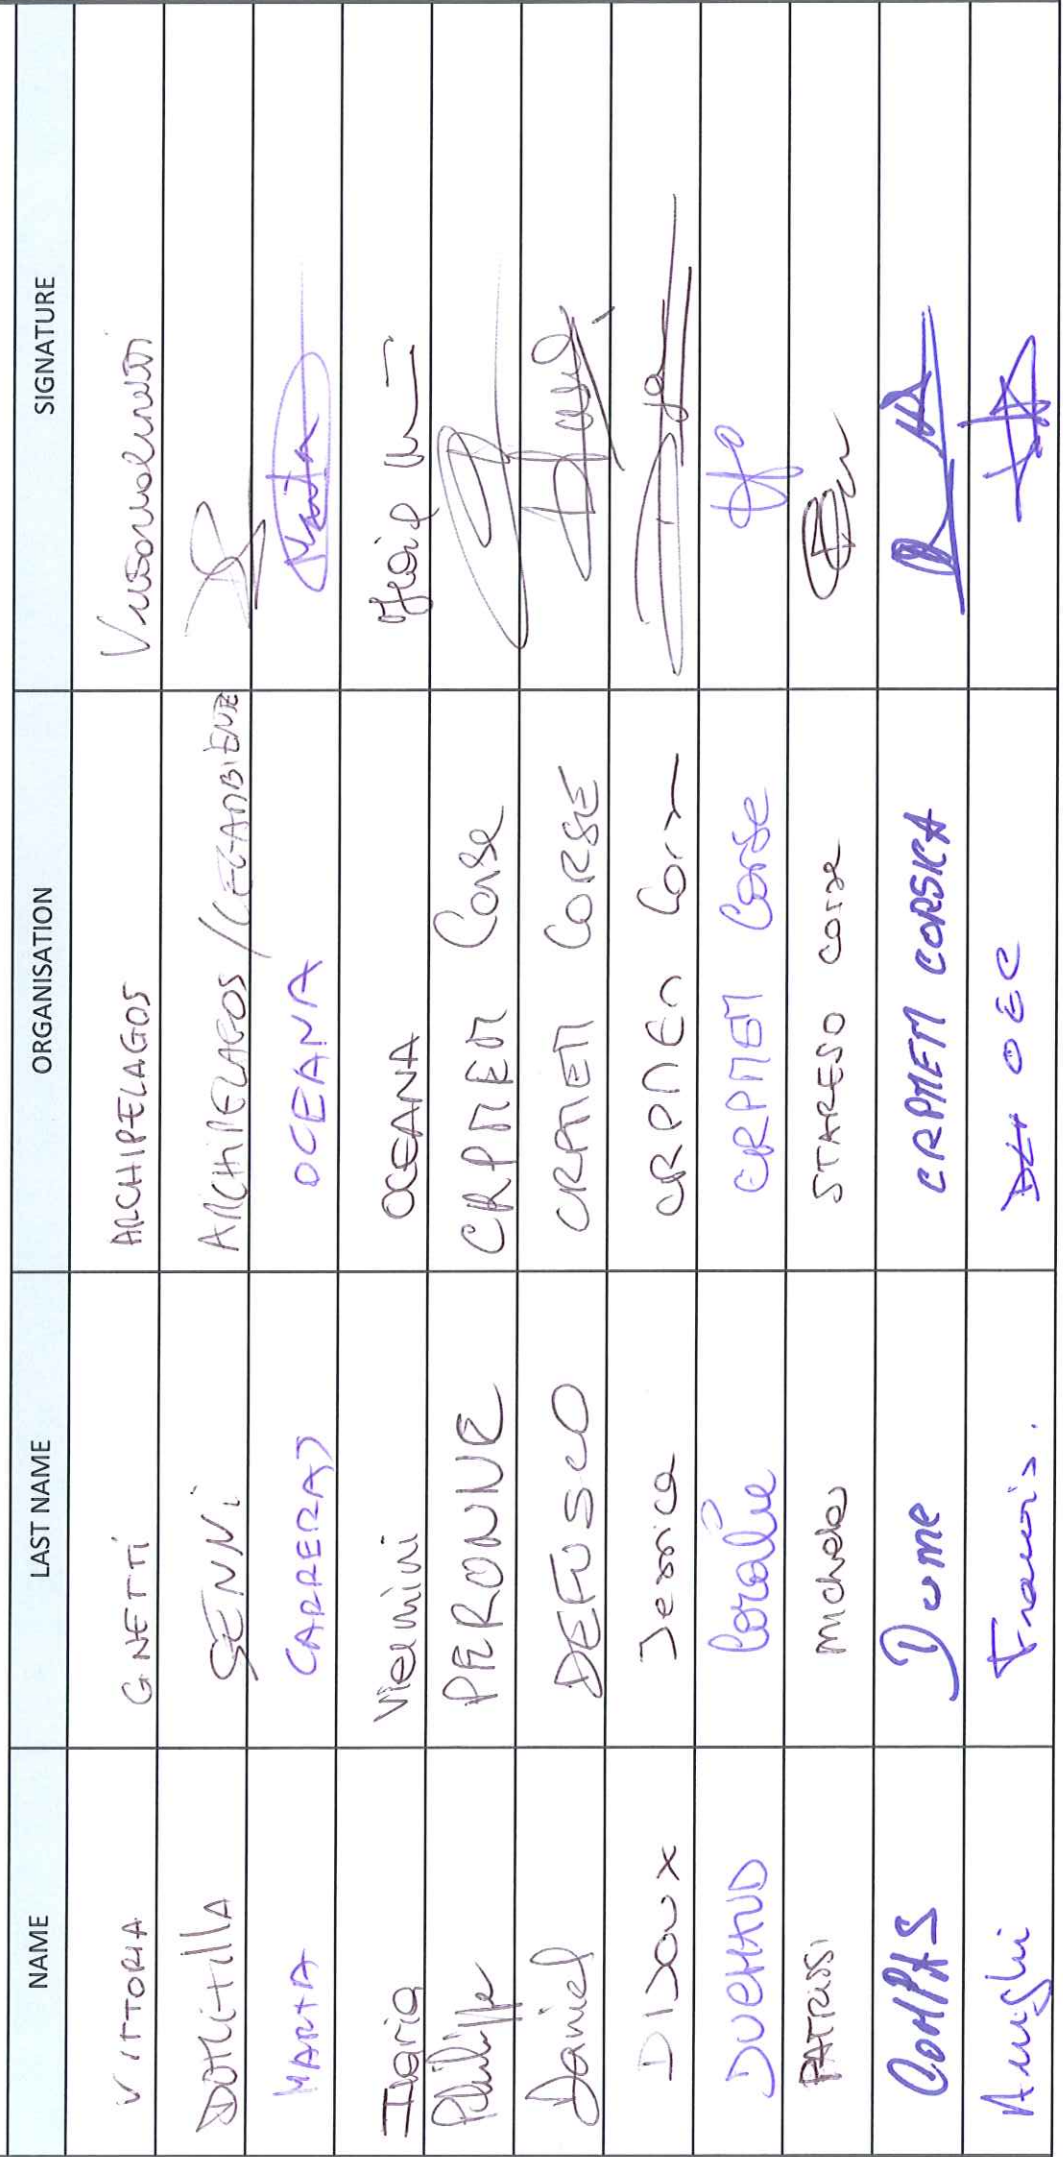 NAME LAST NAME ORGANISATION SIGNATURE
VITTORIA GNETTI ARCHIPELAGOS
DOMITILLA SENNI ARCHIPELAGOS /
MARTA CARRERAS OCEANA Marta
Ilaria Vielmini OCEANA
Philippe PERONNE CRPMEM Corse
Daniel DEFUSCO CRPMEM CORSE
DIJOUX Jessica CRPMEM Corse
DUCHAUD Coralie CRPMEM Corse
PATRISSI Michela STARESO Corse
COMPAS Dume CRPMEM CORSICA
Francois. OEC